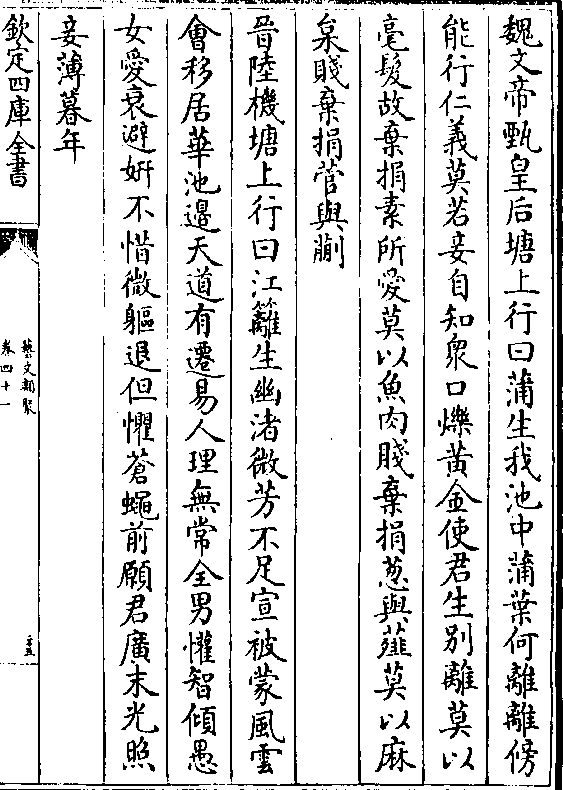 魏文帝甄皇后塘上行曰蒲生我池中蒲葉何離離傍
能行仁義莫若妾自知衆口爍黄金使君生别離莫以
毫髮故棄捐素所愛莫以魚肉賤棄捐葱與薤莫以麻
枲賤棄捐菅與蒯
晉陸機塘上行曰江蘺生幽渚微芳不足宣被蒙風雲
會移居華池邉天道有遷易人理無常全男懽智傾愚
女愛衰避姸不惜微軀退但懼蒼蠅前願君廣末光照
妾薄暮年
欽定四庫全書
藝文類聚
卷四十一